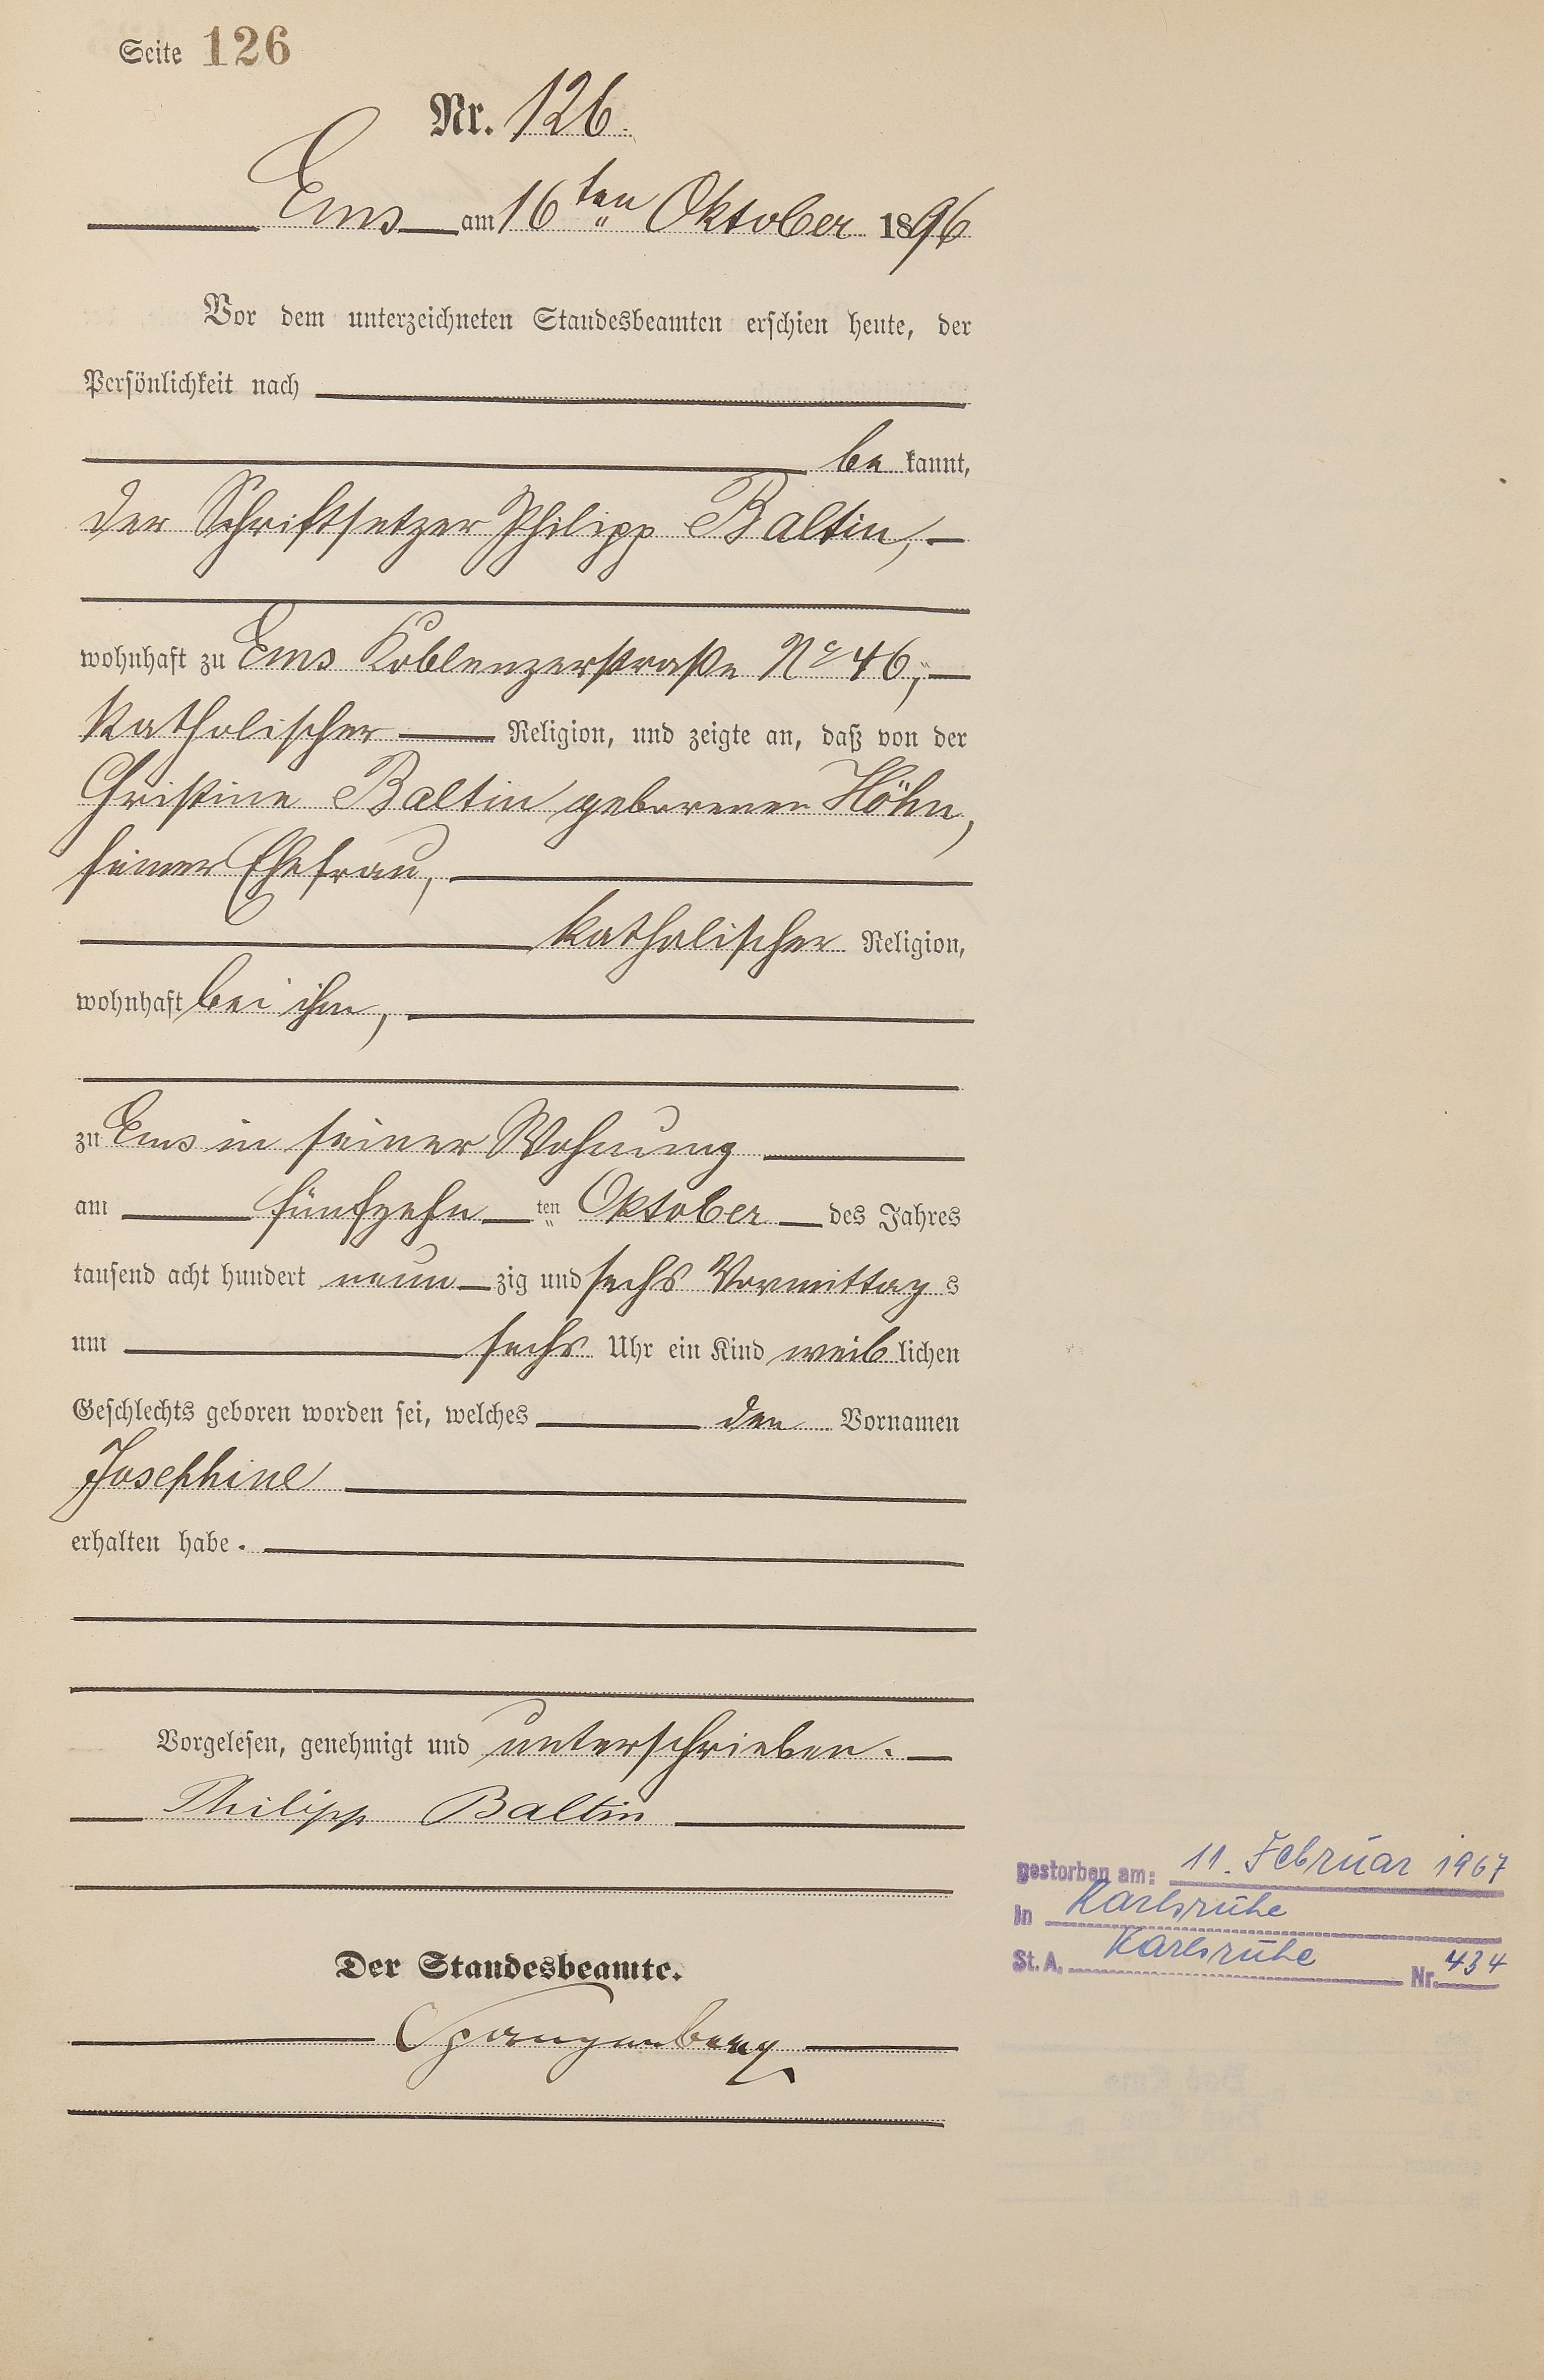 Seite 126
Nr. 126.
Ems am 16ten Oktober 1896
Vor dem unterzeichneten Standesbeamten erschien heute, der
Persönlichkeit nach
be kannt,
der Schriftsetzer Philipp Baltin,
wohnhaft zu Ems Koblenzerstraße No 46,
katholischer Religion, und zeigte an, daß von der
Christine Baltin geborenen Höhn,
seiner Ehefrau,
katholischer Religion,
wohnhaft bei ihm,
zu Ems in seiner Wohnung
am fünfzehn ten Oktober des Jahres
tausend acht hundert neun zig und sechs Vormittag s
um sechs Uhr ein Kind weib lichen
Geschlechts geboren worden sei, welches den Vornamen
Josephine
erhalten habe.
Vorgelesen, genehmigt und unterschrieben.
Philipp Baltin
gestorben am: 11. Februar 1967
in Karlsruhe
St. A. Karlsruhe Nr. 434
Der Standesbeamte.
Spangenberg